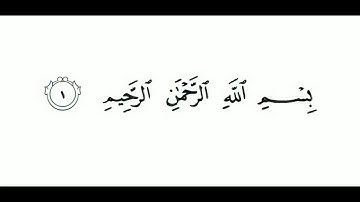 بِسْمِ ٱللَّهِ ٱلرَّحْمَٰنِ ٱلرَّحِيمِ ١